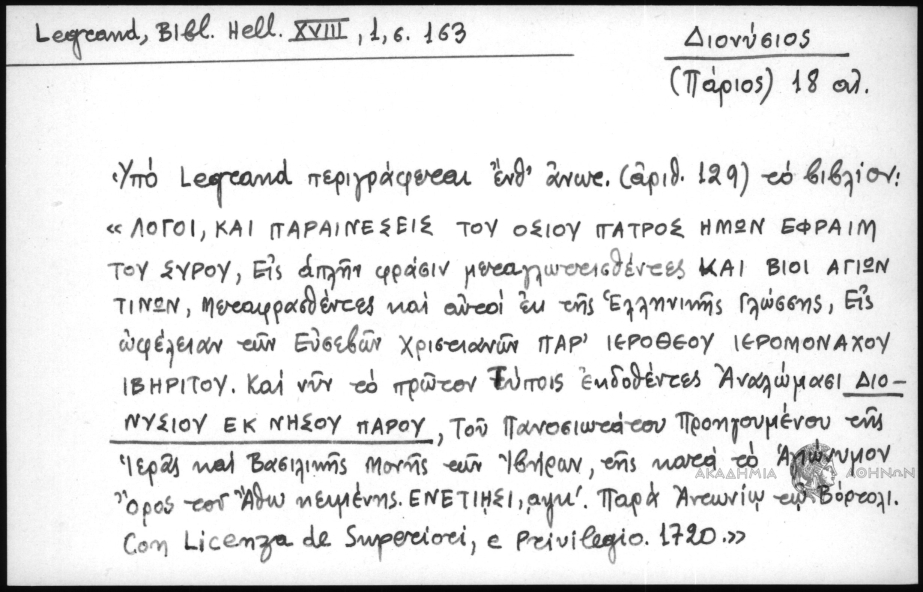 Legrand, Bibl. Hell. XVIII, 1, σ. 163
Διονύσιος
(Πάριος) 18 αι.
Ὑπό Legrand περιγράφεται ἔνθ' ἄνωτ. (ἀριθ. 129) τό βιβλίον:
« ΛΟΓΟΙ, ΚΑΙ ΠΑΡΑΙΝΕΣΕΙΣ ΤΟΥ ΟΣΙΟΥ ΠΑΤΡΟΣ ΗΜΩΝ ΕΦΡΑΙΜ
ΤΟΥ ΣΥΡΟΥ, Εἰς ἁπλῆν φράσιν μεταγλωττισθέντες ΚΑΙ ΒΙΟΙ ΑΓΙΩΝ
ΤΙΝΩΝ, Μεταφρασθέντες καί αὐτοί ἐκ τῆς Ἑλληνικῆς Γλώσσης, Εἰς
ὠφέλειαν τῶν Εὐσεβῶν Χριστιανῶν ΠΑΡ' ΙΕΡΟΘΕΟΥ ΙΕΡΟΜΟΝΑΧΟΥ
ΙΒΗΡΙΤΟΥ. Καί νῦν τό πρῶτον Τύποις ἐκδοθέντες Ἀναλώμασι ΔΙΟ-
ΝΥΣΙΟΥ ΕΚ ΝΗΣΟΥ ΠΑΡΟΥ, Τοῦ Πανοσιωτάτου Προηγουμένου τῆς
Ἱερᾶς καί Βασιλικῆς Μονῆς τῶν Ἰβήρων, τῆς κατά τό Ἁγιώνυμον
Ὄρος τοῦ Ἄθω κειμένης. ΕΝΕΤΙῌΣΙ, αψκ'. Παρά Ἀντωνίῳ τῷ Βόρτολι.
Con Licenza de Superiori, e Privilegio. 1720.»
ΑΚΑΔΗΜΙΑ ΑΘΗΝΩΝ